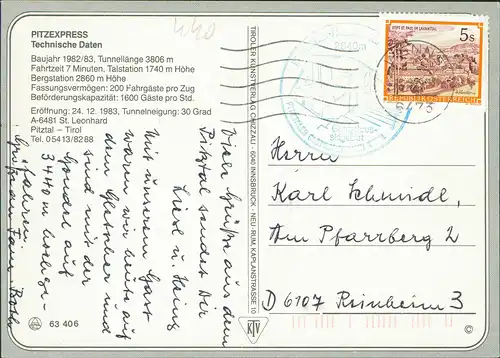 440
PITZEXPRESS
Technische Daten
Baujahr 1982/83, Tunnellänge 3806 m
Fahrtzeit 7 Minuten, Talstation 1740 m Höhe
Bergstation 2860 m Höhe
Fassungsvermögen: 200 Fahrgäste pro Zug
Beförderungskapazität: 1600 Gäste pro Std.
Eröffnung: 24. 12. 1983, Tunnelneigung: 30 Grad
A-6481 St. Leonhard
Pitztal – Tirol
Tel. 05413/8288
Viele Grüße aus dem
Pitztal sendet Dir
Liesl u. Heinz
Mit unserem Gast
waren wir heute auf
dem Gletscher und
sind mit der
Gondel auf
3440 m hochge-
fahren.
Grüße an Fam. Roth
63 406
TIROLER KUNSTVERLAG CHIZZALI - 6040 INNSBRUCK - NEU-RUM, KAPLANSTRASSE 10
KTV
2840m
6473
STIFT ST. PAUL IM LAVANTTAL
5s
REPUBLIK ÖSTERREICH
Herrn
Karl Schmidl,
Am Pfarrberg 2
D 6107 Reinheim 3
©